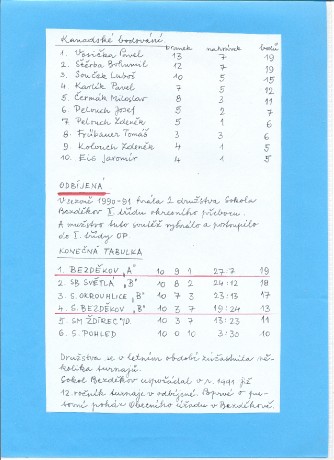 Kanadské bodování branek nahrávek bodů
1. Vosička Pavel 13 7 19
2. Štěrba Bohumil 12 7 19
3. Souček Luboš 10 5 15
4. Karlík Pavel 7 5 12
5. Čermák Miloslav 8 3 11
6. Pelouch Josef 5 2 7
7. Pelouch Zdeněk 5 1 6
8. Frühauer Tomáš 3 3 6
9. Kolouch Zdeněk 4 1 5
10. Eis Jaromír 4 1 5
ODBÍJENÁ
V sezoně 1990-91 hrála 2 družstva Sokola
Bezděkov I. třídu okresního přeboru.
A mužstvo tuto soutěž vyhrálo a postoupilo
do I. třídy OP
KONEČNÁ TABULKA
1. BEZDĚKOV "A" 10 9 1 27:7 19
2. SB SVĚTLÁ "B" 10 8 2 24:12 18
3. S. OKROUHLICE "B" 10 7 3 23:13 17
4. S. BEZDĚKOV "B" 10 3 7 19:24 13
5. SM ŽDÍREC "D" 10 3 7 13:23 11
6. S. POHLED 10 0 10 3:30 10
Družstva se v letním období zúčastnila ně-
kolika turnajů.
Sokol Bezděkov uspořádal v r. 1991 již
12. ročník turnaje v odbíjené. Poprvé o pu-
tovní pohár Obecního úřadu v Bezděkově.